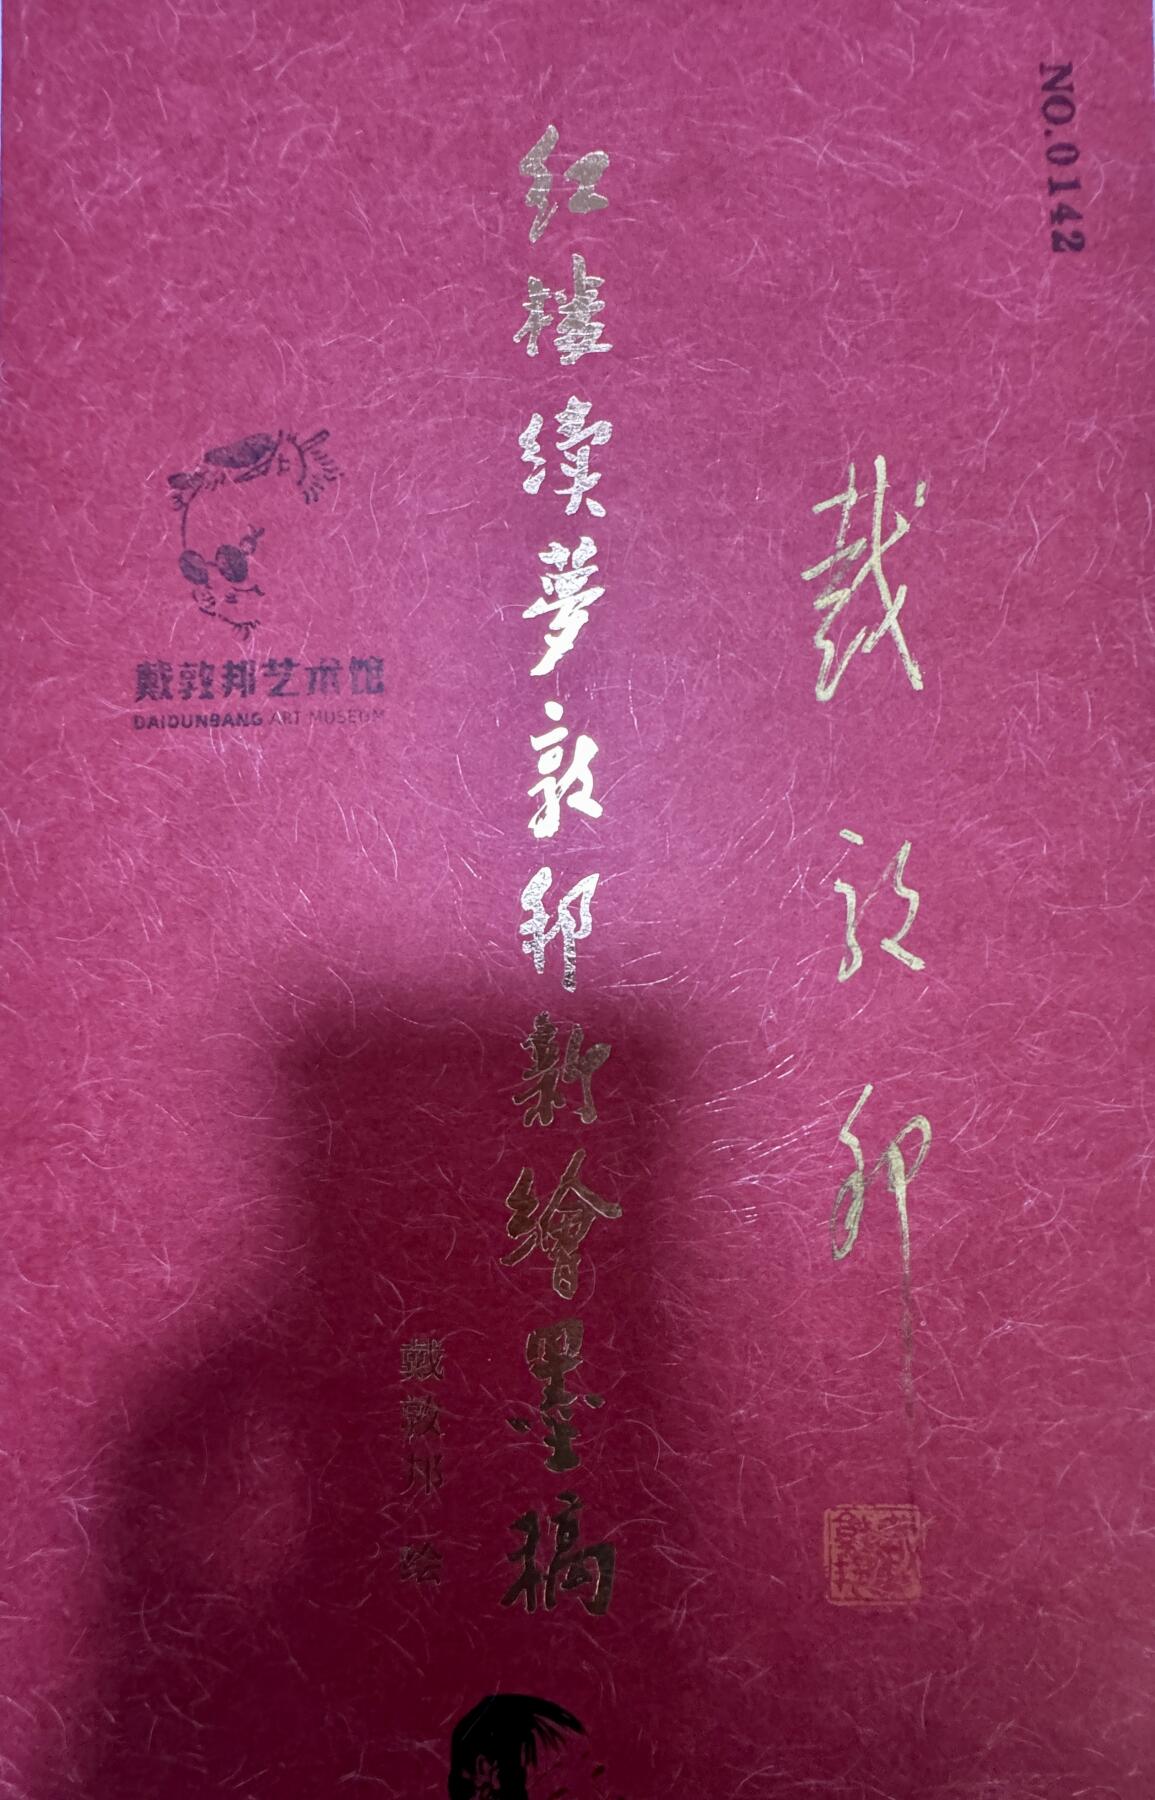 NO.0142
戴敦邦
红楼续梦敦邦新繪墨稿
戴敦邦 绘
戴敦邦艺术馆
DAIDUNBANG ART MUSEUM